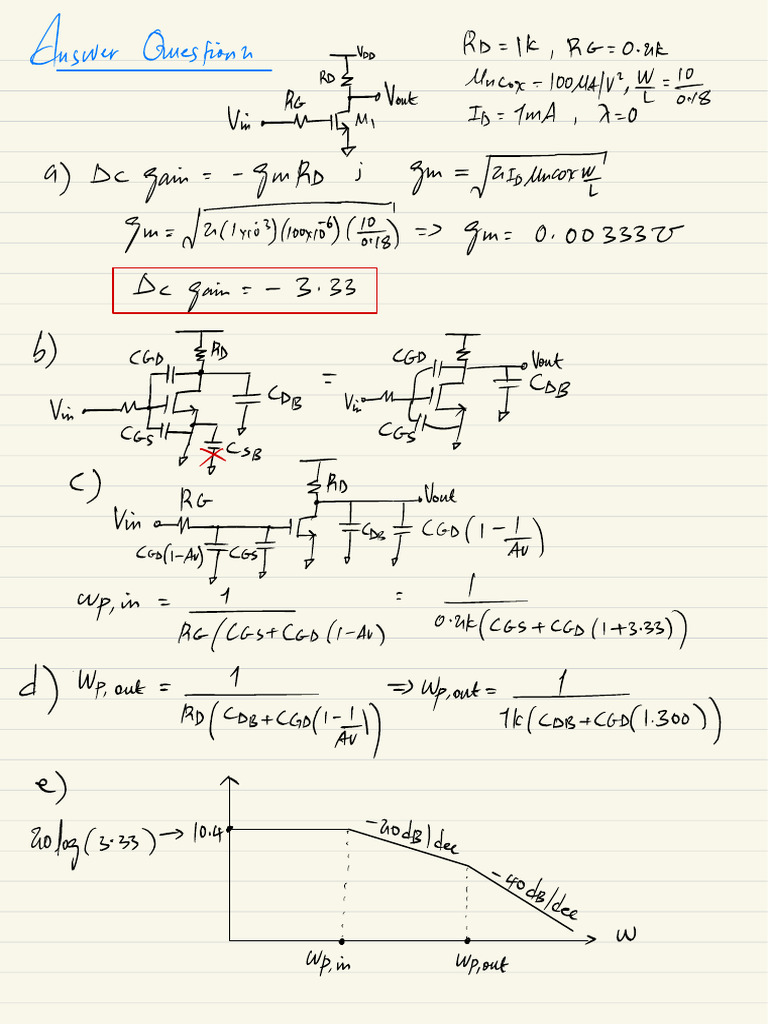 Answer Question 2
VDD
RD
RG
Vin
Vout
M1
RD = 1k , RG = 0.2k
μnCox = 100μA/V², W/L = 10/0.18
ID = 1mA , λ=0
a) DC gain = - gmRD ; gm = √(2ID μnCox W/L)
gm = √(2(1×10⁻³)(100×10⁻⁶)(10/0.18)) => gm = 0.00333℧
DC gain = - 3.33
b)
CGD
RD
CDB
Vin
CGS
CSB
=
CGD
Vout
CDB
Vin
CGS
c)
RD
RG
Vout
Vin
CGD(1-Av)
CGS
CDB
CGD(1 - 1/Av)
ωp,in = 1/(RG(CGS+CGD(1-Av)) = 1/(0.2k(CGS+CGD(1+3.33))
d) ωp,out = 1/(RD(CDB+CGD(1-1/Av)) => ωp,out = 1/(1k(CDB+CGD(1.300))
e)
20log(3.33) → 10.4
-20dB/dec
-40dB/dec
ω
ωp,in
ωp,out